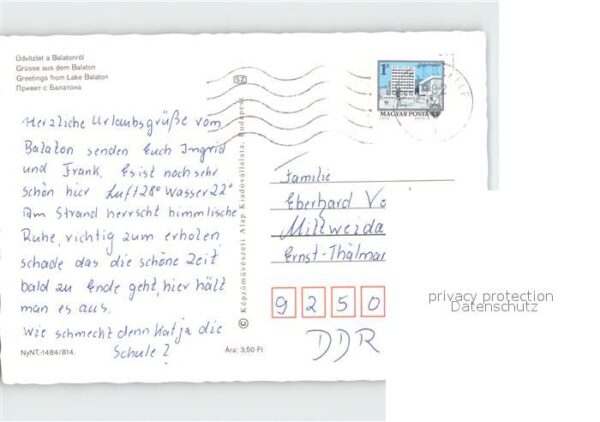 Üdvözlet a Balatonról
Grüsse aus dem Balaton
Greetings from Lake Balaton
Привет с Балатона
SZ
1 Ft
MAGYAR POSTA
Herzliche Urlaubsgrüße vom
Balaton senden Euch Ingrid
und Frank. Es ist noch sehr
schön hier Luft 28° Wasser 22°
Am Strand herrscht himmlische
Ruhe, richtig zum erholen
schade das die schöne Zeit
bald zu Ende geht, hier hält
man es aus.
Wie schmeckt denn Katja die
Schule?
NyNT.-1484/814.
Ára: 3,50 Ft
© Képzőművészeti Alap Kiadóvállalata, Budapest
Familie
Eberhard Vo
Mittweida
Ernst-Thälman
9250
DDR
privacy protection
Datenschutz